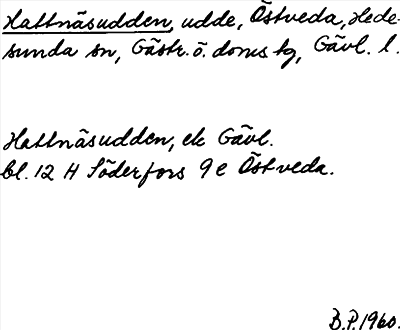 Hattnäsudden, udde, Östveda, Hede-
sunda sn, Gästr. ö. doms tg, Gävl. l.
Hattnäsudden, ek Gävl.
bl. 12 H Söderfors 9 e Östveda.
B.P. 1960.